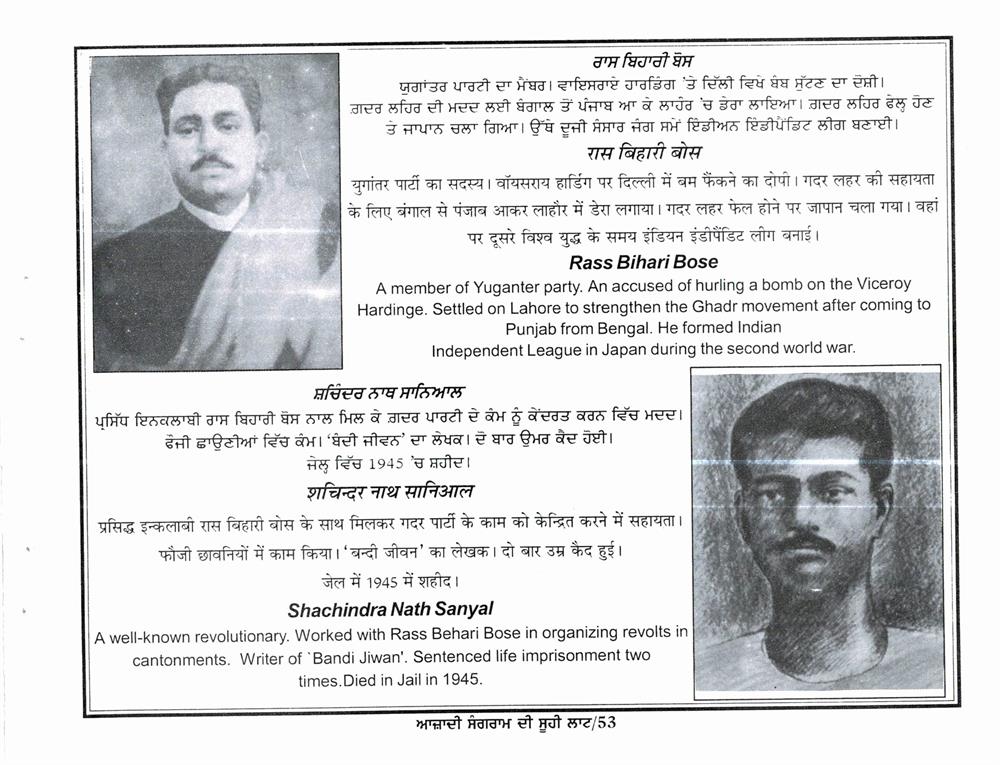 ਰਾਸ ਬਿਹਾਰੀ ਬੋਸ
ਯੁਗਾਂਤਰ ਪਾਰਟੀ ਦਾ ਮੈਂਬਰ। ਵਾਇਸਰਾਏ ਹਾਰਡਿੰਗ 'ਤੇ ਦਿੱਲੀ ਵਿਖੇ ਬੰਬ ਸੁੱਟਣ ਦਾ ਦੋਸ਼ੀ।
ਗ਼ਦਰ ਲਹਿਰ ਦੀ ਮਦਦ ਲਈ ਬੰਗਾਲ ਤੋਂ ਪੰਜਾਬ ਆ ਕੇ ਲਾਹੌਰ 'ਚ ਡੇਰਾ ਲਾਇਆ। ਗ਼ਦਰ ਲਹਿਰ ਫੇਲ੍ਹ ਹੋਣ
ਤੇ ਜਾਪਾਨ ਚਲਾ ਗਿਆ। ਉੱਥੇ ਦੂਜੀ ਸੰਸਾਰ ਜੰਗ ਸਮੇਂ ਇੰਡੀਅਨ ਇੰਡੀਪੈਂਡਿਟ ਲੀਗ ਬਣਾਈ।
रास बिहारी बोस
युगांतर पार्टी का सदस्य। वॉयसराय हार्डिंग पर दिल्ली में बम फैंकने का दोपी। गदर लहर की सहायता
के लिए बंगाल से पंजाब आकर लाहौर में डेरा लगाया। गदर लहर फेल होने पर जापान चला गया। वहां
पर दूसरे विश्व युद्ध के समय इंडियन इंडीपैंडिट लीग बनाई।
Rass Bihari Bose
A member of Yuganter party. An accused of hurling a bomb on the Viceroy
Hardinge. Settled on Lahore to strengthen the Ghadr movement after coming to
Punjab from Bengal. He formed Indian
Independent League in Japan during the second world war.
ਸ਼ਚਿੰਦਰ ਨਾਥ ਸਾਨਿਆਲ
ਪ੍ਰਸਿੱਧ ਇਨਕਲਾਬੀ ਰਾਸ ਬਿਹਾਰੀ ਬੋਸ ਨਾਲ ਮਿਲ ਕੇ ਗ਼ਦਰ ਪਾਰਟੀ ਦੇ ਕੰਮ ਨੂੰ ਕੇਂਦਰਤ ਕਰਨ ਵਿੱਚ ਮਦਦ।
ਫੌਜੀ ਛਾਉਣੀਆਂ ਵਿੱਚ ਕੰਮ। 'ਬੰਦੀ ਜੀਵਨ' ਦਾ ਲੇਖਕ। ਦੋ ਬਾਰ ਉਮਰ ਕੈਦ ਹੋਈ।
ਜੇਲ੍ਹ ਵਿੱਚ 1945 'ਚ ਸ਼ਹੀਦ।
शचिन्दर नाथ सानिआल
प्रसिद्ध इन्कलाबी रास बिहारी बोस के साथ मिलकर गदर पार्टी के काम को केन्द्रित करने में सहायता।
फौजी छावनियों में काम किया। 'बन्दी जीवन' का लेखक। दो बार उम्र कैद हुई।
जेल में 1945 में शहीद।
Shachindra Nath Sanyal
A well-known revolutionary. Worked with Rass Behari Bose in organizing revolts in
cantonments. Writer of `Bandi Jiwan'. Sentenced life imprisonment two
times.Died in Jail in 1945.
ਆਜ਼ਾਦੀ ਸੰਗਰਾਮ ਦੀ ਸੂਹੀ ਲਾਟ/53